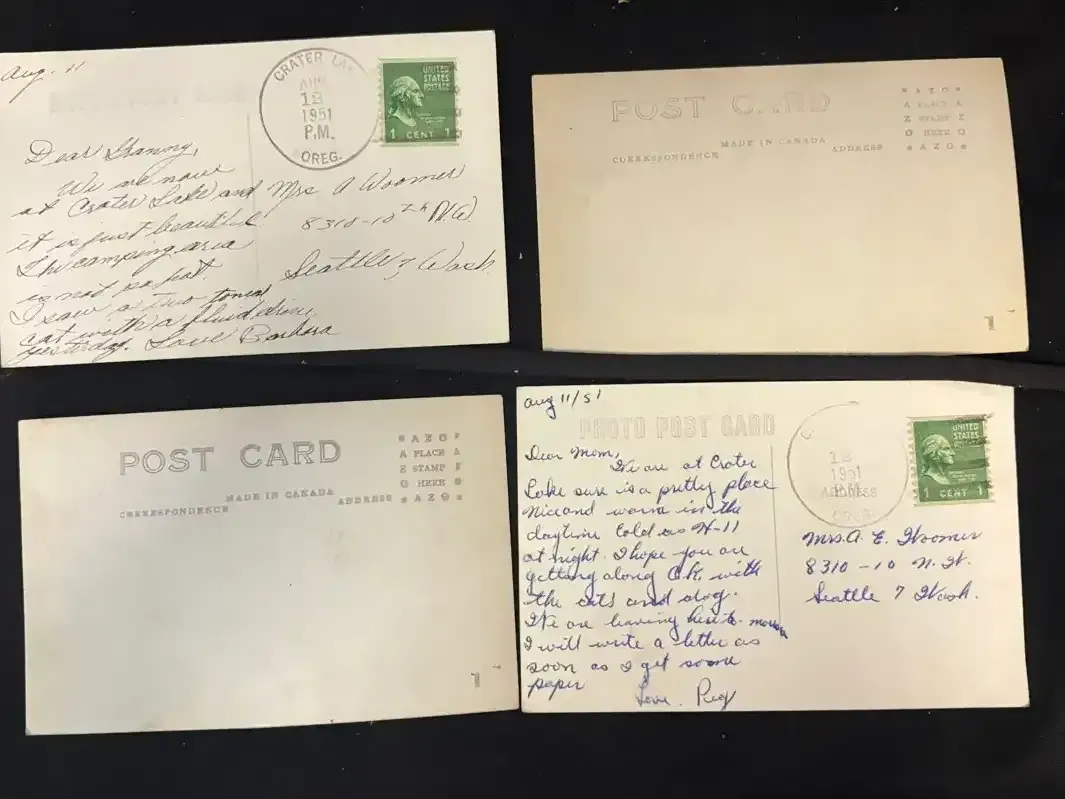 Aug. 11
CRATER LA
AUG
13
1951
P.M.
OREG.
UNITED
STATES
POSTAGE
1 CENT 1
Dear Granny,
We are now
at Crater Lake and
it is just beautiful
The camping area
is not so hot.
I saw a two toned
cat with a fluid drive
yesterday. Love Barbara
Mrs A Woomer
8310-10th N.W.
Seattle 7 Wash
POST CARD
MADE IN CANADA
CORRESPONDENCE
ADDRESS
AZO
A PLACE A
Z STAMP Z
O HERE O
AZO
1
POST CARD
MADE IN CANADA
CORRESPONDENCE
ADDRESS
AZO
A PLACE A
Z STAMP
O HERE O
AZO
1
Aug 11/51
PHOTO POST CARD
Dear Mom,
We are at Crater
Lake sure is a pretty place
Nice and warm in the
daytime Cold as H-11
at night. I hope you are
getting along O.K. with
the cats and dog.
We are leaving here to-morrow
I will write a letter as
soon as I get some
paper
Love. Peg
C
13
1951
P.M.
ADDRESS
OREG.
UNITED
STATES
POSTAGE
1 CENT 1
Mrs. A. E. Woomer
8310-10 N.W.
Seattle 7 Wash.